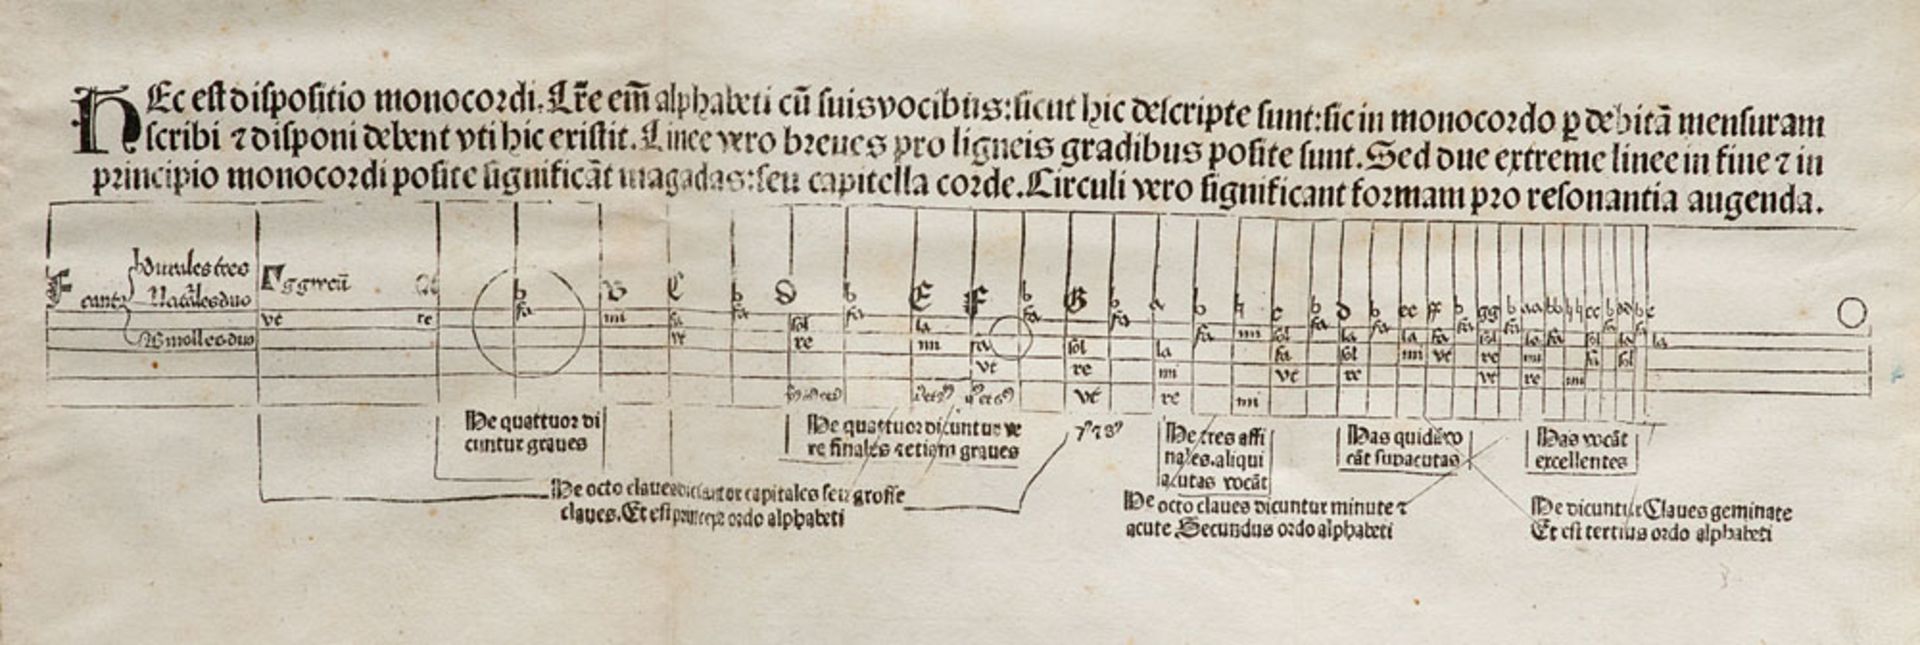 HEc est dispositio monocordi. Lr̃e em̃ alphabeti cũ suis vocibus: sicut hic descripte sunt: sic in monocordo ꝑ debitã mensuram
scribi ⁊ disponi debent vti hic existit. Linee vero breues pro ligneis gradibus posite sunt. Sed due extreme linee in fine ⁊ in
principio monocordi posite significãt magadas: seu capitella corde. Circuli vero significant formam pro resonantia augenda.
♮durales tres
F cant9 Nat̃ales duo
♭molles duo
Γ grecũ A b B C b D b E F b G b a b ♮ c b d b ee ff b gg b aa bb ♮♮ cc b dd b e
vt re fa mi fa fa sol fa la fa fa fa mi sol fa la fa la fa fa sol fa la fa sol la la
vt re mi fa sol la fa sol mi vt re mi fa sol
vt re mi vt re vt re mi
vt re mi
He quattuor di
cuntur graues
He quattuor dicuntur ve
re finales ⁊ etiam graues
7⁹ ⁊ 8⁹
He tres affi
nales. aliqui
acutas vocãt
Has quidẽ vo
cãt supacutas
Has vocãt
excellentes
He octo claues dicuntur capitales seu grosse
claues. Et est princeps ordo alphabeti
He octo claues dicuntur minute ⁊
acute Secundus ordo alphabeti
He dicuntur Claues geminate
Et est tertius ordo alphabeti